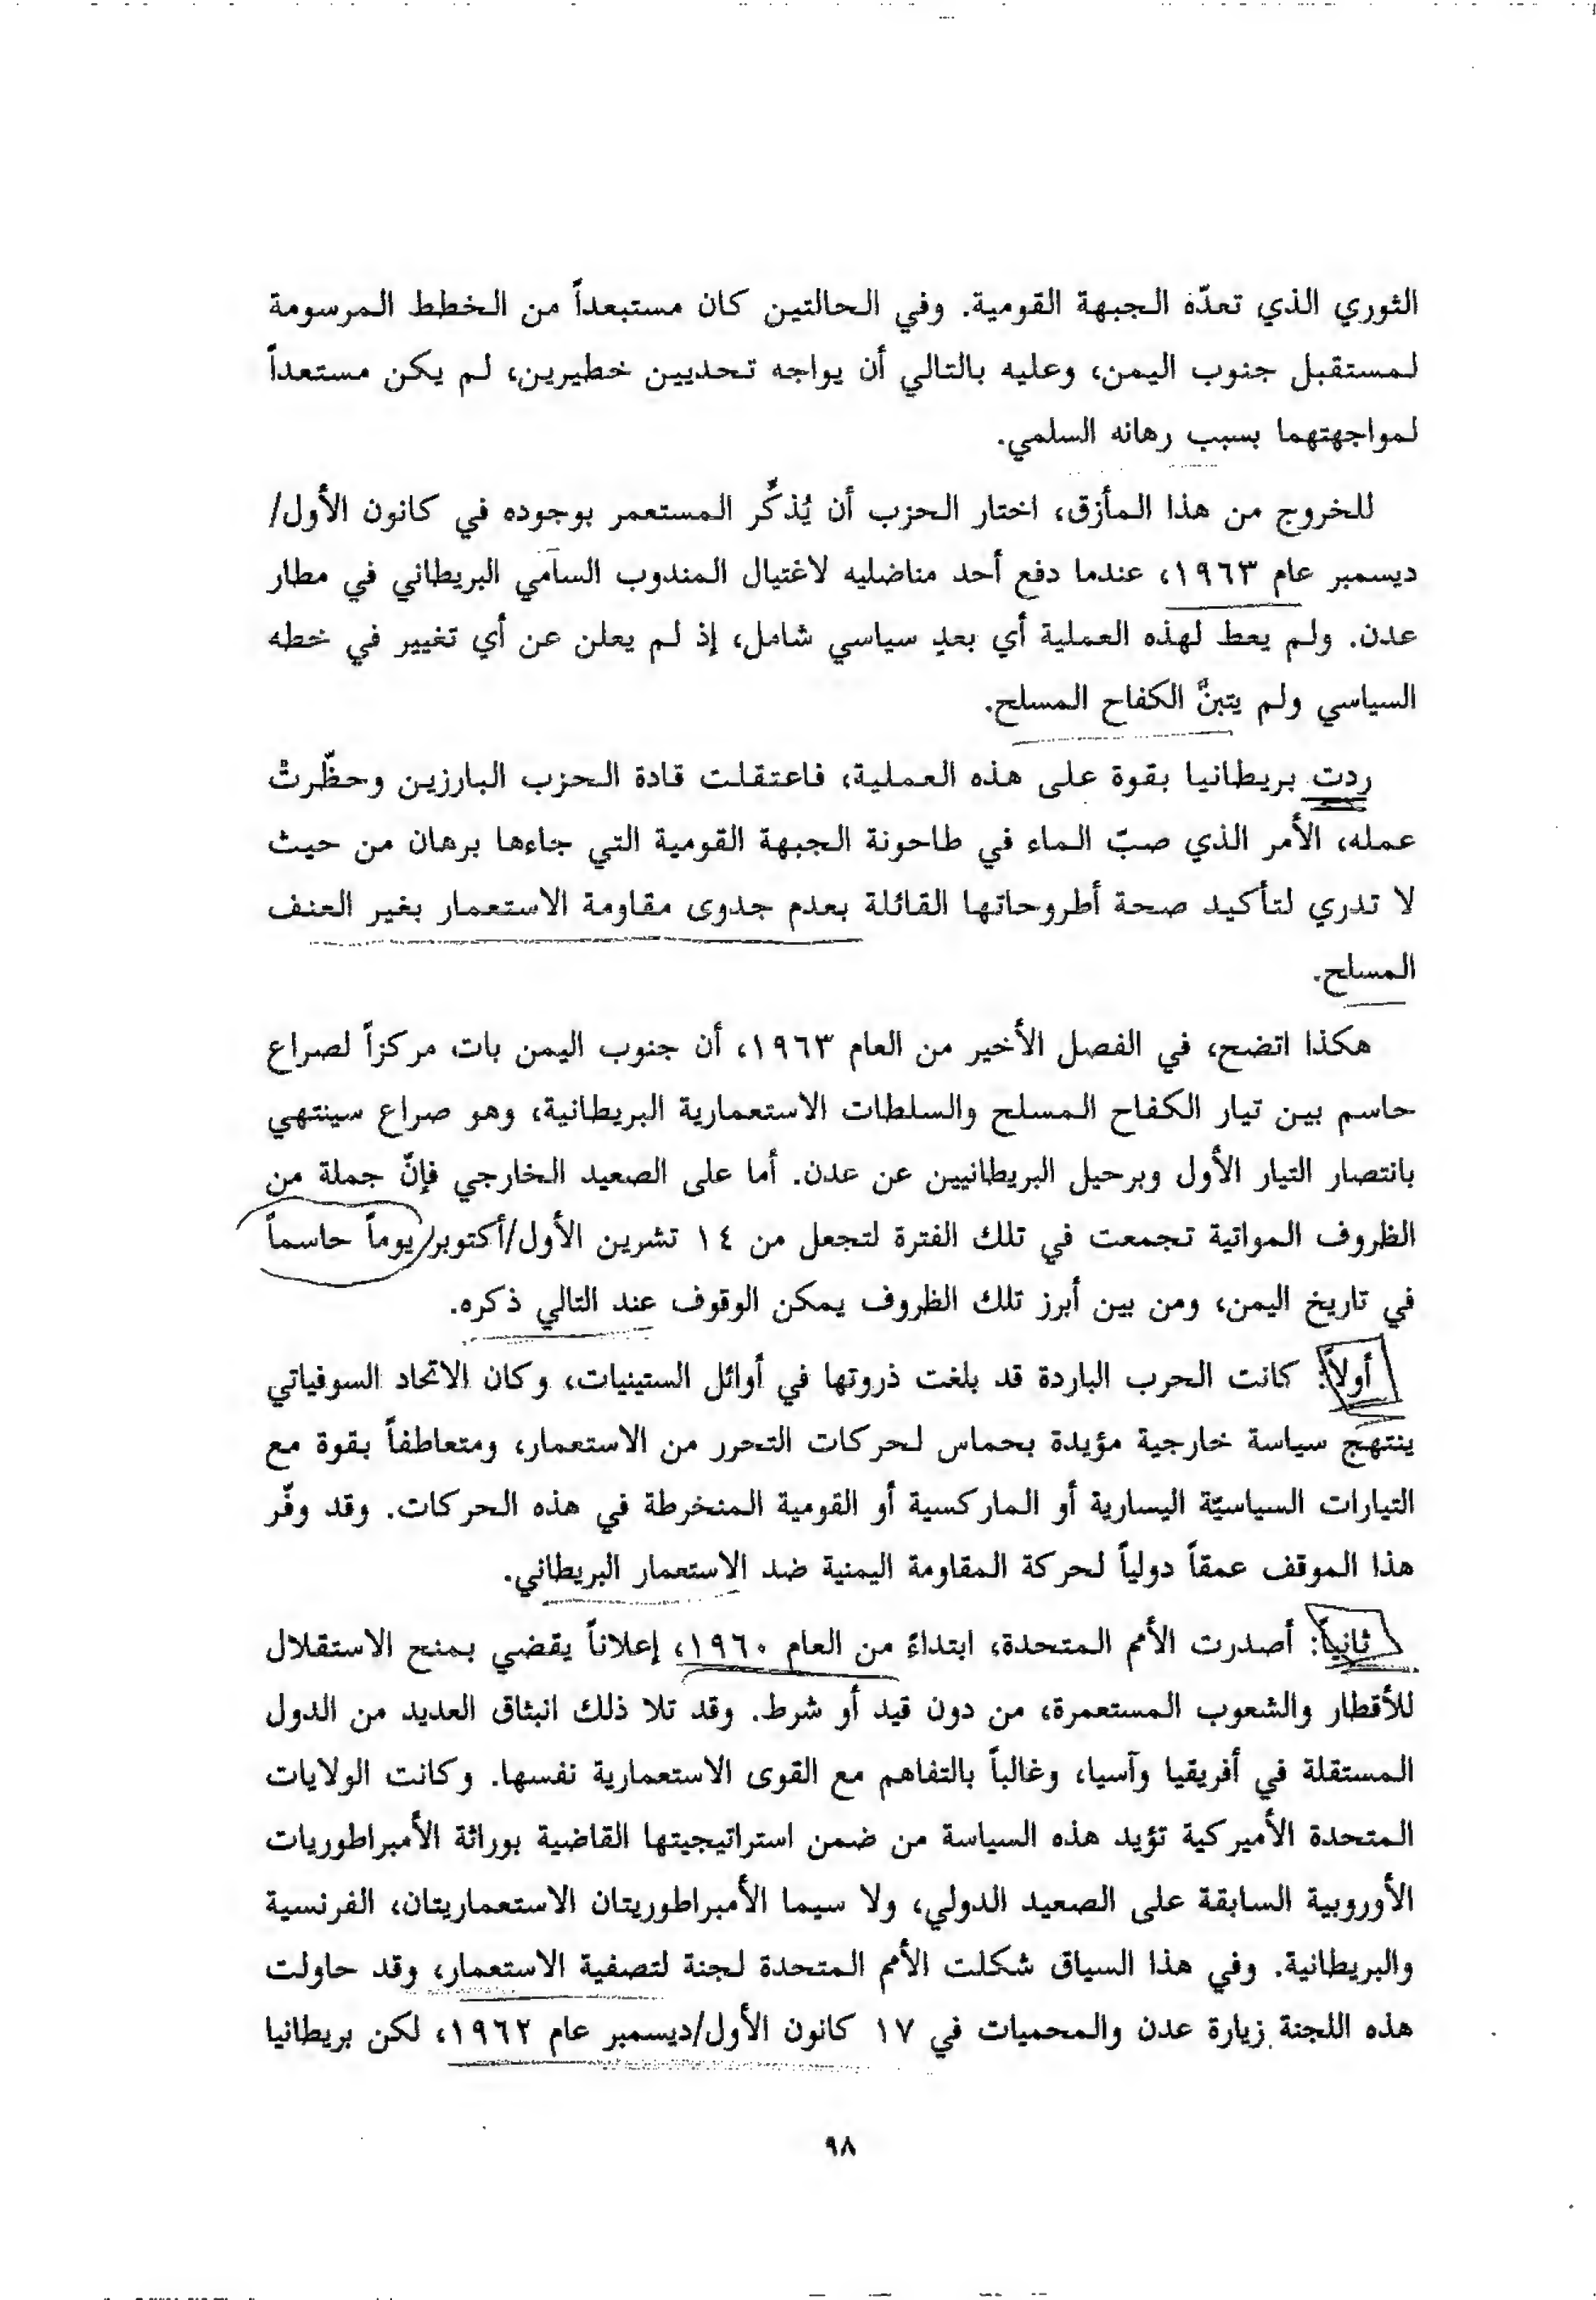 الثوري الذي تعدّه الجبهة القومية. وفي الحالتين كان مستبعداً من الخطط المرسومة
لمستقبل جنوب اليمن، وعليه بالتالي أن يواجه تحديين خطيرين، لم يكن مستعداً
لمواجهتهما بسبب رهانه السلمي.
للخروج من هذا المأزق، اختار الحزب أن يُذكِّر المستعمر بوجوده في كانون الأول/
ديسمبر عام ١٩٦٣، عندما دفع أحد مناضليه لاغتيال المندوب السامي البريطاني في مطار
عدن. ولم يعط لهذه العملية أي بعدٍ سياسي شامل، إذ لم يعلن عن أي تغيير في خطه
السياسي ولم يتبنَّ الكفاح المسلح.
ردت بريطانيا بقوة على هذه العملية، فاعتقلت قادة الحزب البارزين وحظّرتْ
عمله، الأمر الذي صبّ الماء في طاحونة الجبهة القومية التي جاءها برهان من حيث
لا تدري لتأكيد صحة أطروحاتها القائلة بعدم جدوى مقاومة الاستعمار بغير العنف
المسلح.
هكذا اتضح، في الفصل الأخير من العام ١٩٦٣، أن جنوب اليمن بات مركزاً لصراع
حاسم بين تيار الكفاح المسلح والسلطات الاستعمارية البريطانية، وهو صراع سينتهي
بانتصار التيار الأول وبرحيل البريطانيين عن عدن. أما على الصعيد الخارجي فإنّ جملة من
الظروف المواتية تجمعت في تلك الفترة لتجعل من ١٤ تشرين الأول/أكتوبر/يوماً حاسماً
في تاريخ اليمن، ومن بين أبرز تلك الظروف يمكن الوقوف عند التالي ذكره.
أولاً: كانت الحرب الباردة قد بلغت ذروتها في أوائل الستينيات، وكان الاتحاد السوفياتي
ينتهج سياسة خارجية مؤيدة بحماس لحركات التحرر من الاستعمار، ومتعاطفاً بقوة مع
التيارات السياسيّة اليسارية أو الماركسية أو القومية المنخرطة في هذه الحركات. وقد وفّر
هذا الموقف عمقاً دولياً لحركة المقاومة اليمنية ضد الاستعمار البريطاني.
ثانياً: أصدرت الأمم المتحدة، ابتداءً من العام ١٩٦٠، إعلاناً يقضي بمنح الاستقلال
للأقطار والشعوب المستعمرة، من دون قيد أو شرط. وقد تلا ذلك انبثاق العديد من الدول
المستقلة في أفريقيا وآسيا، وغالباً بالتفاهم مع القوى الاستعمارية نفسها. وكانت الولايات
المتحدة الأميركية تؤيد هذه السياسة من ضمن استراتيجيتها القاضية بوراثة الأمبراطوريات
الأوروبية السابقة على الصعيد الدولي، ولا سيما الأمبراطوريتان الاستعماريتان، الفرنسية
والبريطانية. وفي هذا السياق شكلت الأمم المتحدة لجنة لتصفية الاستعمار، وقد حاولت
هذه اللجنة زيارة عدن والمحميات في ١٧ كانون الأول/ديسمبر عام ١٩٦٢، لكن بريطانيا
٩٨